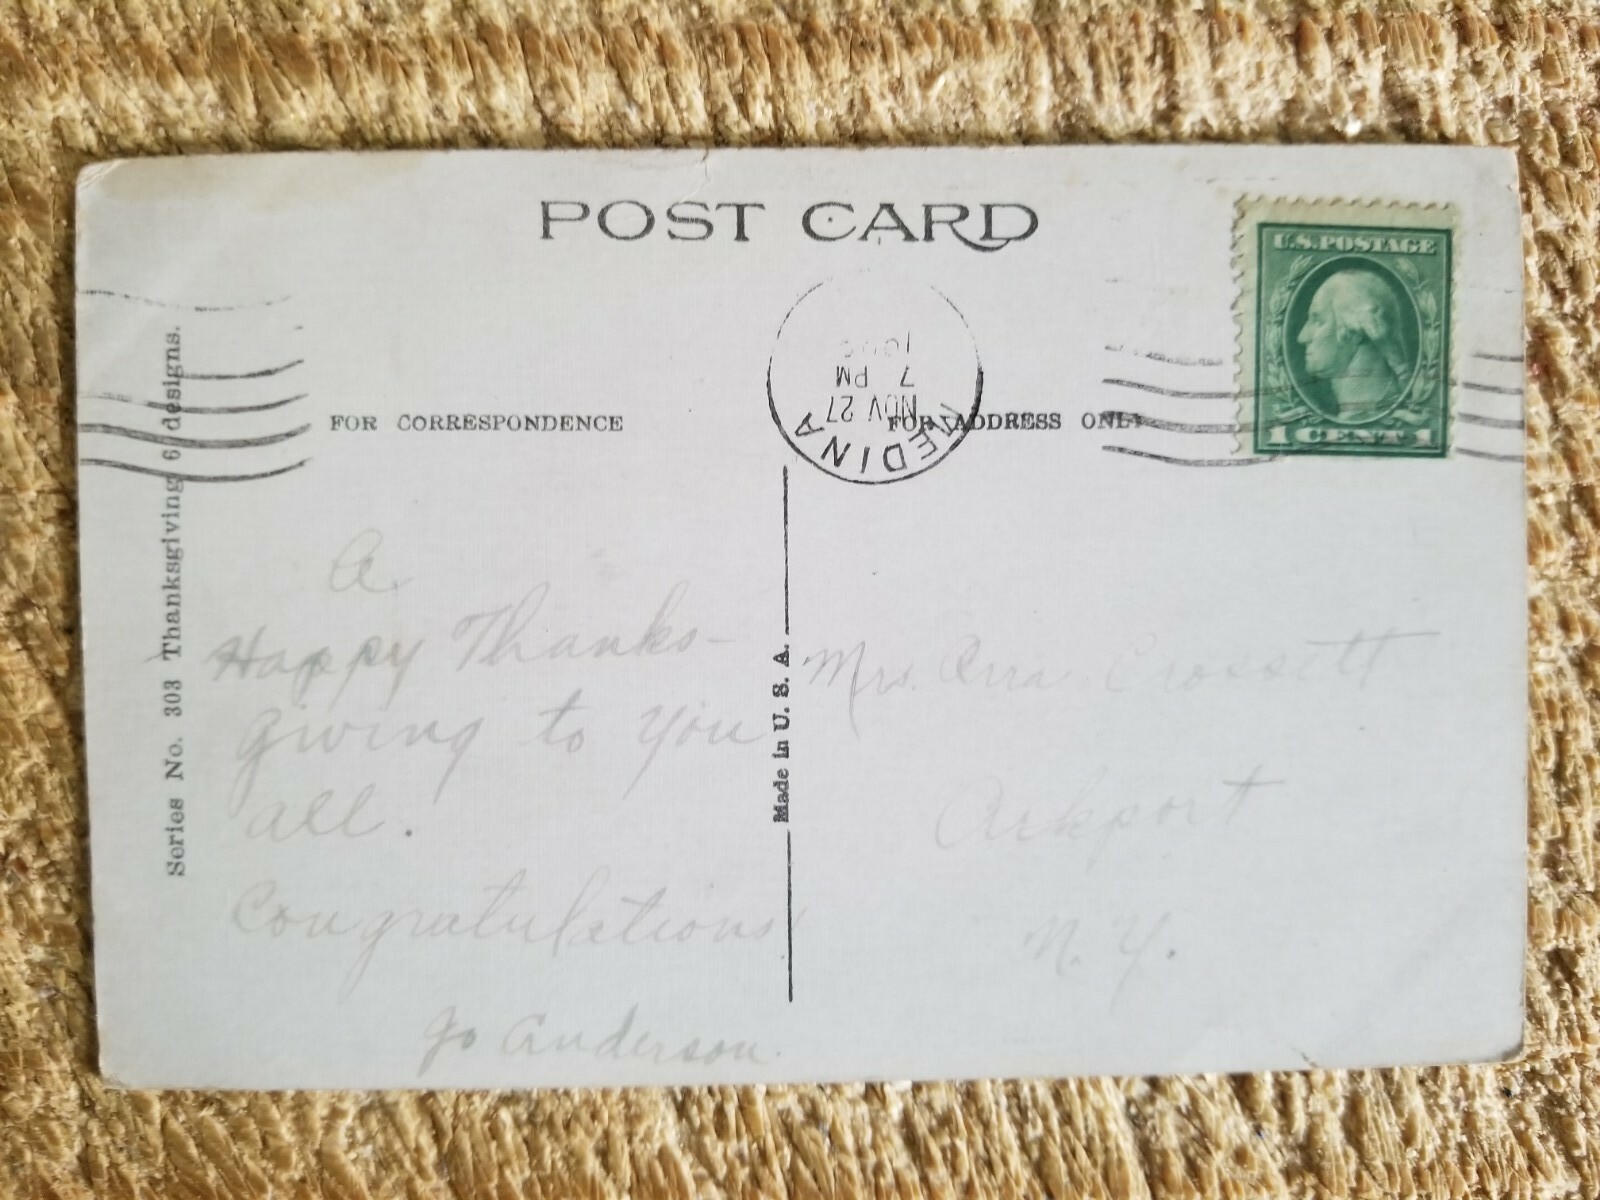 POST CARD
U.S. POSTAGE
1 CENT 1
MEDINA
NOV 27
7 PM
FOR CORRESPONDENCE
FOR ADDRESS ONLY
Series No. 303 Thanksgiving 6 designs.
Made in U. S. A.
A
Happy Thanks-
giving to you
all.
Congratulations
Jo Anderson.
Mrs. Orra Crossett
Arkport
N. Y.